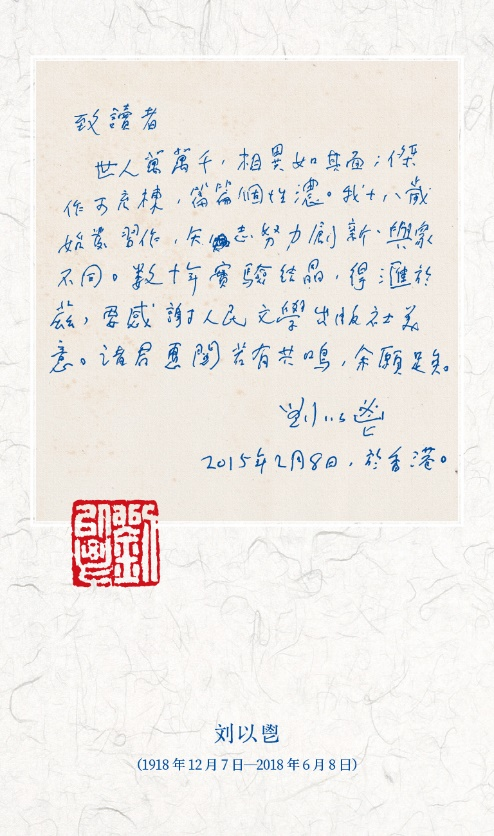 致讀者
世人萬萬千，相異如其面；傑
作可充棟，篇篇個性濃。我十八歲
始發習作，矢志努力創新、與衆
不同。數十年實驗結晶，得滙於
茲，要感謝人民文學出版社美
意。諸君惠閱若有共鳴，余願足矣。
劉以鬯
2015年2月8日，於香港。
劉以鬯
刘以鬯
（1918 年 12 月 7 日—2018 年 6 月 8 日）